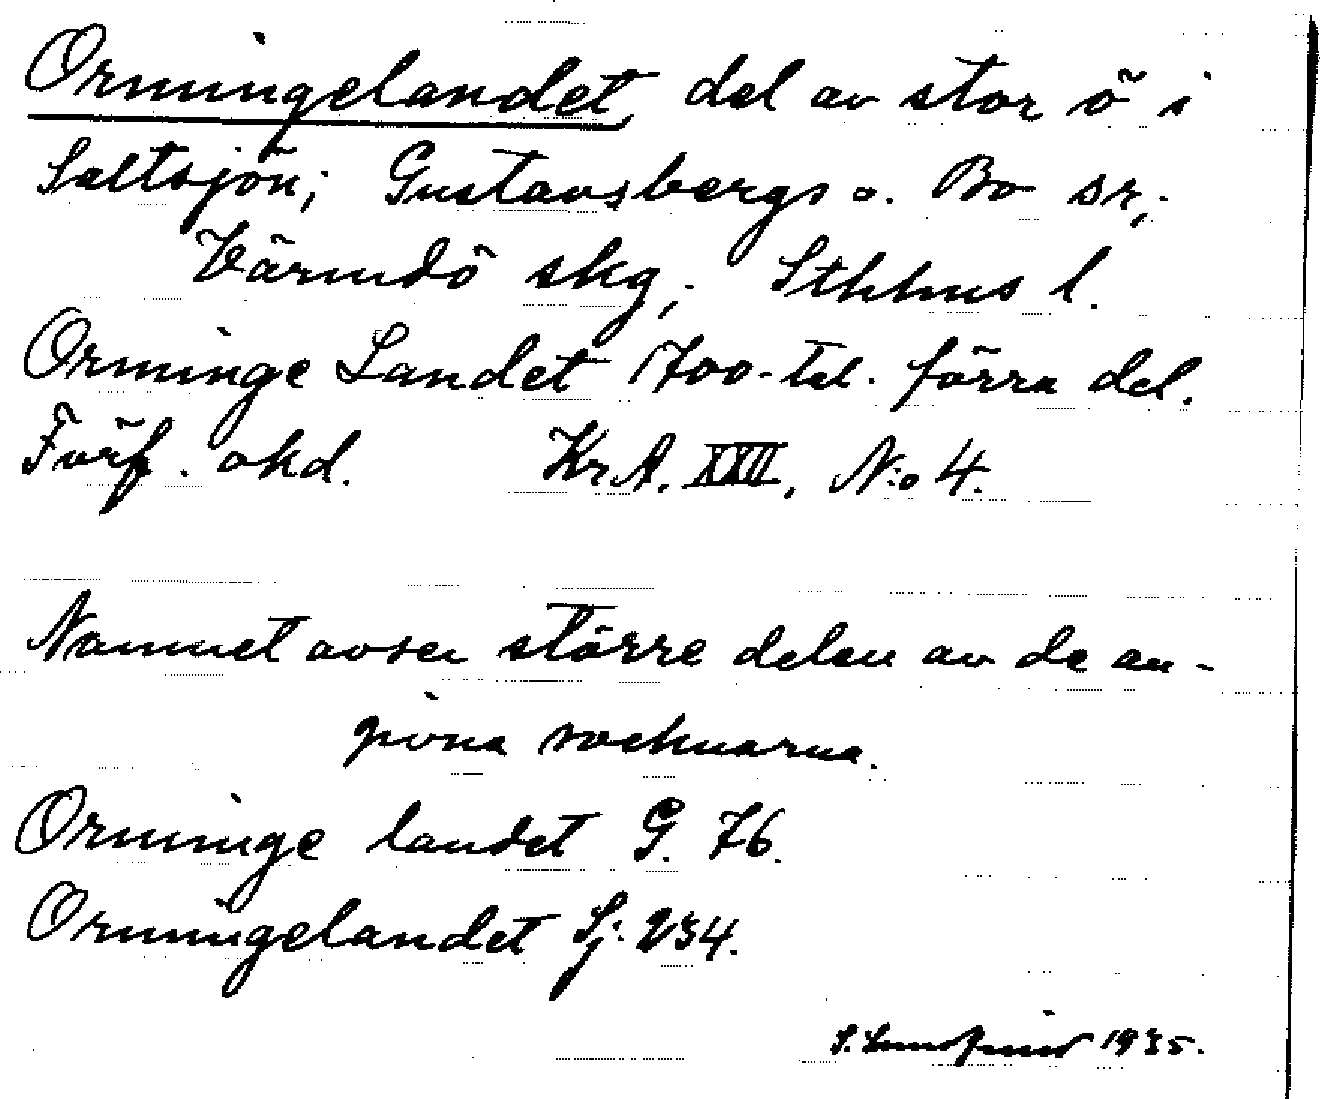 Ormingelandet, del av stor ö i
Saltsjön; Gustavsbergs o. Bo sr;
Värmdö skg; Sthlms l.
Orminge Landet 1700-tal. förra del.
Förf. okd. Kr.A. XXII, N:o 4.
Namnet avser större delen av de an-
givna socknarna.
Orminge landet G. 76.
Ormingelandet Sj. 234.
S. 1935.